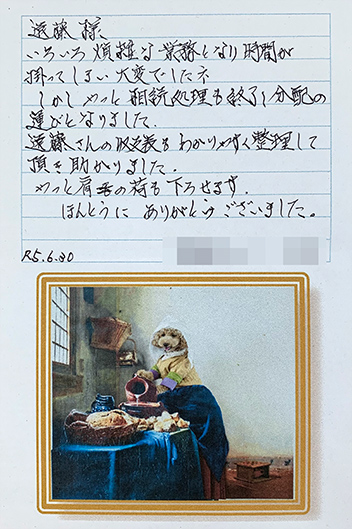 遠藤 様、
いろいろ煩雑な業務となり時間が
掛ってしまい大変でしたネ
しかしやっと相続処理も終了し分配の
運びとなりました。
遠藤さんの収支表もわかりやすく整理して
頂き助かりました。
やっと肩の荷も下ろせます。
ほんとうに ありがとうございました。
R5.6.30